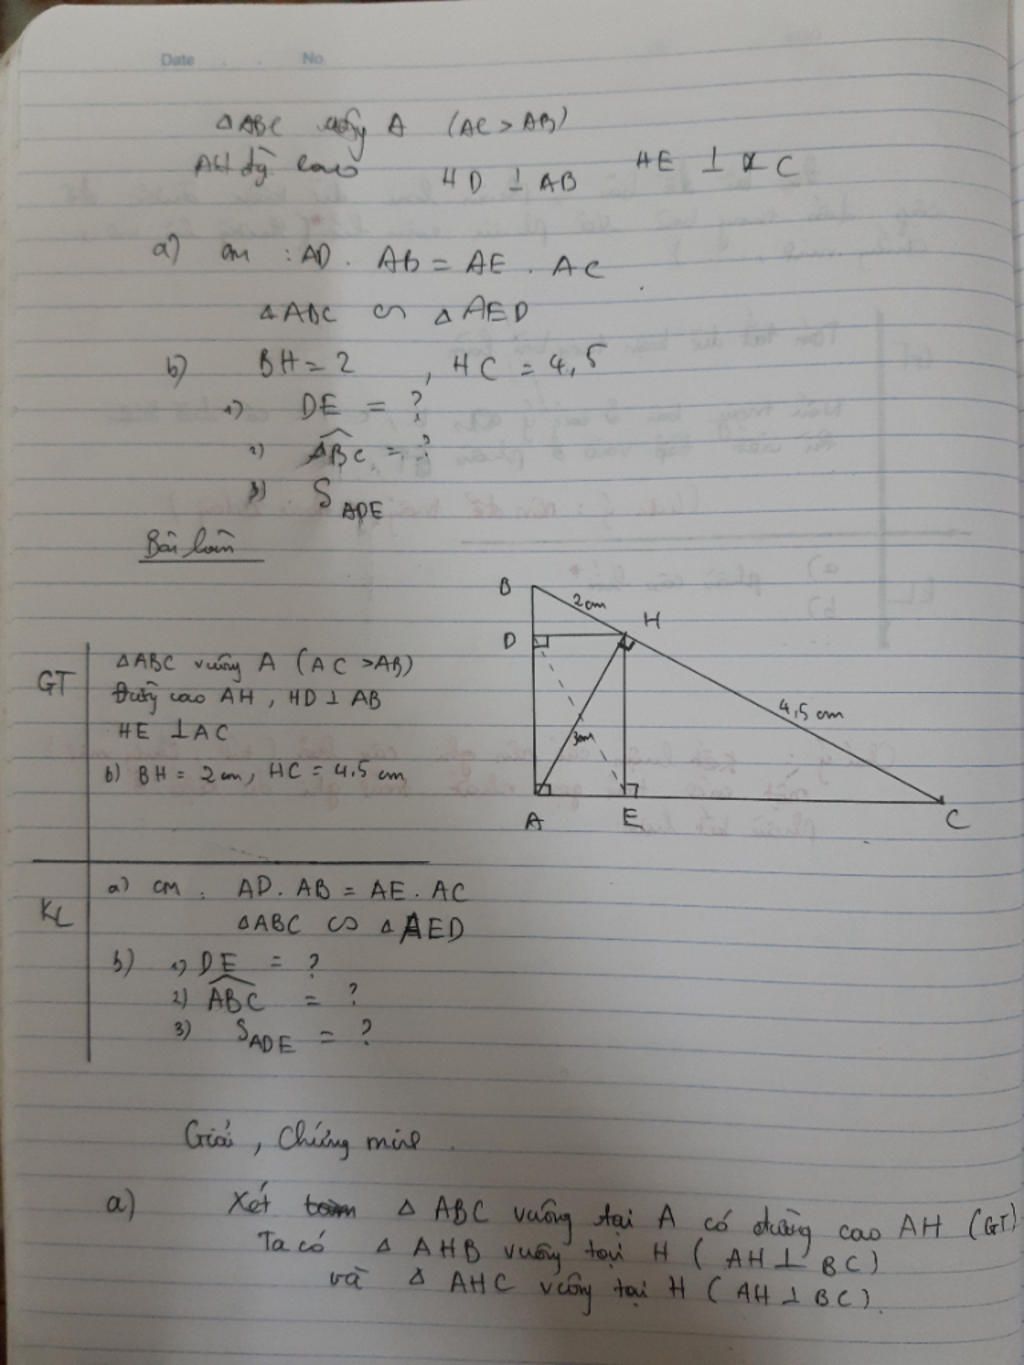 Date No
△ABC vuông A (AC > AB)
AH đg cao HD ⊥ AB HE ⊥ AC
a) cm : AD . AB = AE . AC
△ABC ∽ △AED
b) BH = 2 , HC = 4,5
1) DE = ?
2) ABC = ?
3) S ADE
Bài làm
B
2cm
H
D
4,5 cm
3cm
A
E
C
GT
△ABC vuông A (AC > AB)
Đường cao AH , HD ⊥ AB
HE ⊥ AC
b) BH = 2 cm, HC = 4.5 cm
KL
a) cm : AD. AB = AE . AC
△ABC ∽ △AED
b) 1) DE = ?
2) ABC = ?
3) S ADE = ?
Giải , Chứng minh .
a) Xét △ ABC vuông tại A có đường cao AH (GT)
Ta có △ AHB vuông tại H ( AH ⊥ BC)
và △ AHC vuông tại H ( AH ⊥ BC).